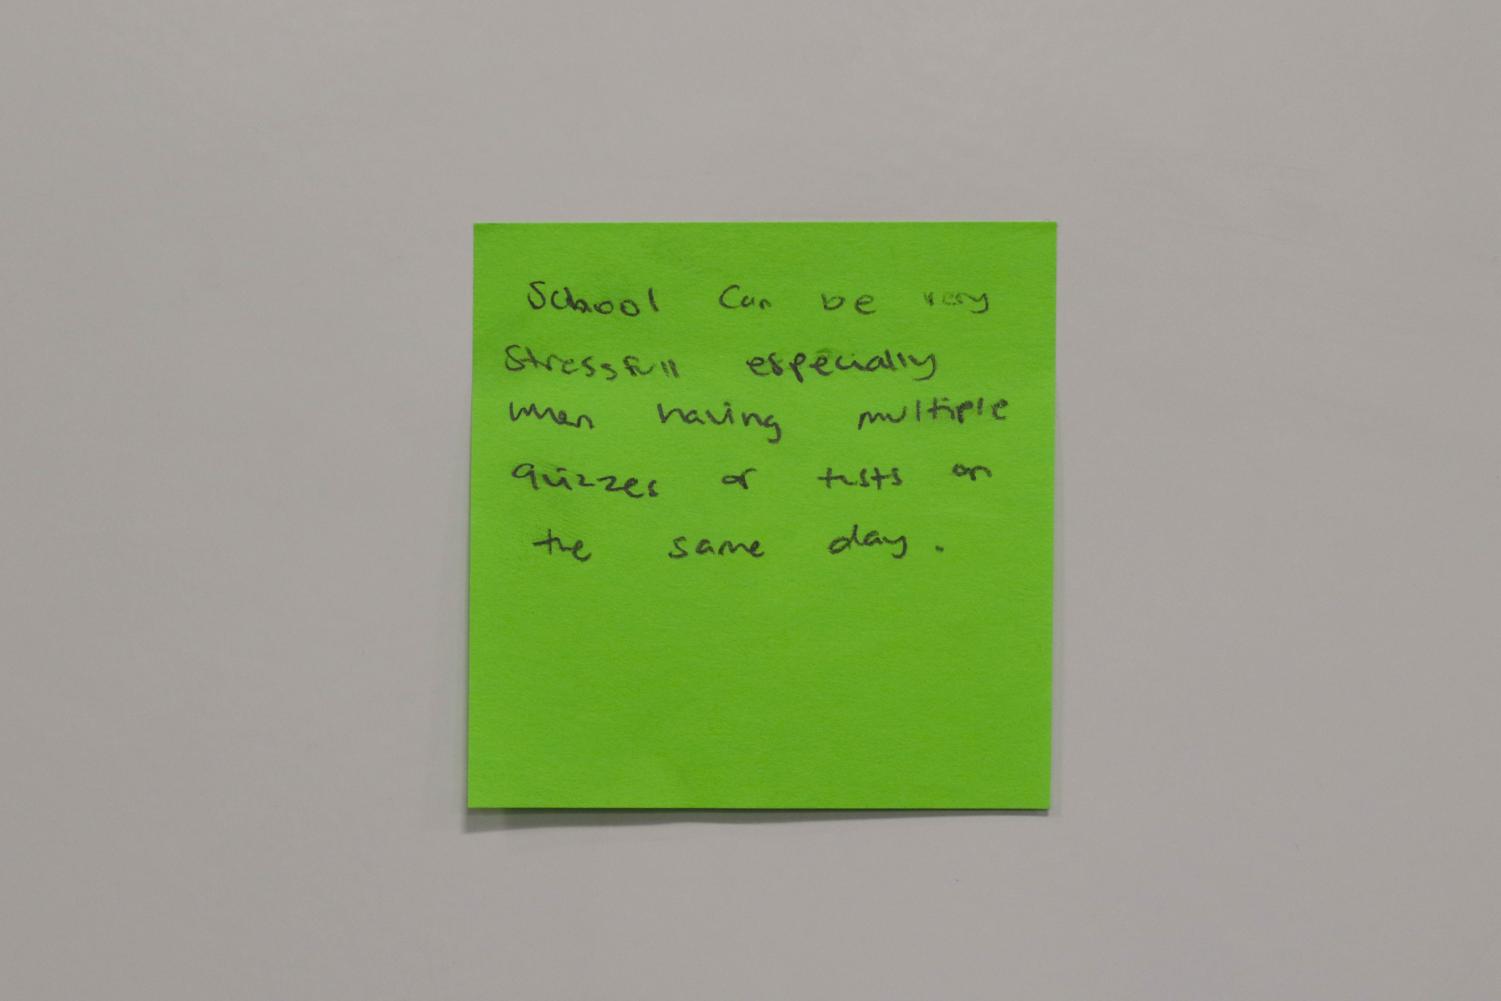 School can be very
stressfull especially
when having multiple
quizzes or tests on
the same day.